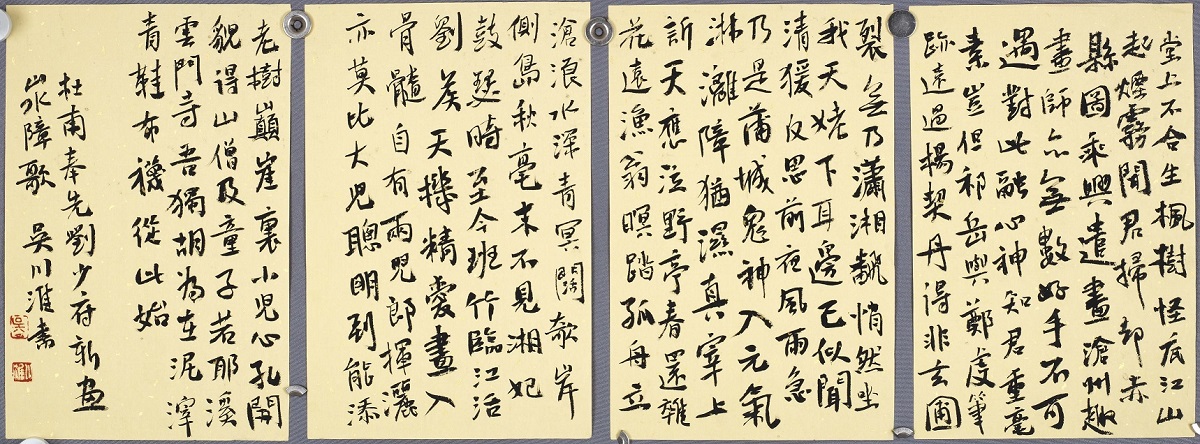 堂上不合生楓樹怪底江山
起煙霧聞君掃却赤
縣圖乘興遣畫滄州趣
畫師亦無數好手不可
遇對此融心神知君重毫
素豈但祁岳與鄭虔筆
跡遠過楊契丹得非玄圃
裂無乃瀟湘翻悄然坐
我天姥下耳邊已似聞
清猨反思前夜風雨急
乃是蒲城鬼神入元氣
淋灕障猶濕真宰上
訴天應泣野亭春還雜
花遠漁翁暝踏孤舟立
滄浪水深青冥闊欹岸
側島秋毫末不見湘妃
鼓瑟時至今班竹臨江活
劉侯天機精愛畫入
骨髓自有兩兒郎揮灑
亦莫比大兒聰明到能添
老樹巔崖裏小兒心孔開
貌得山僧及童子若耶溪
雲門寺吾獨胡為在泥滓
青鞋布襪從此始
杜甫奉先劉少府新畫
山水障歌 吳川淮書